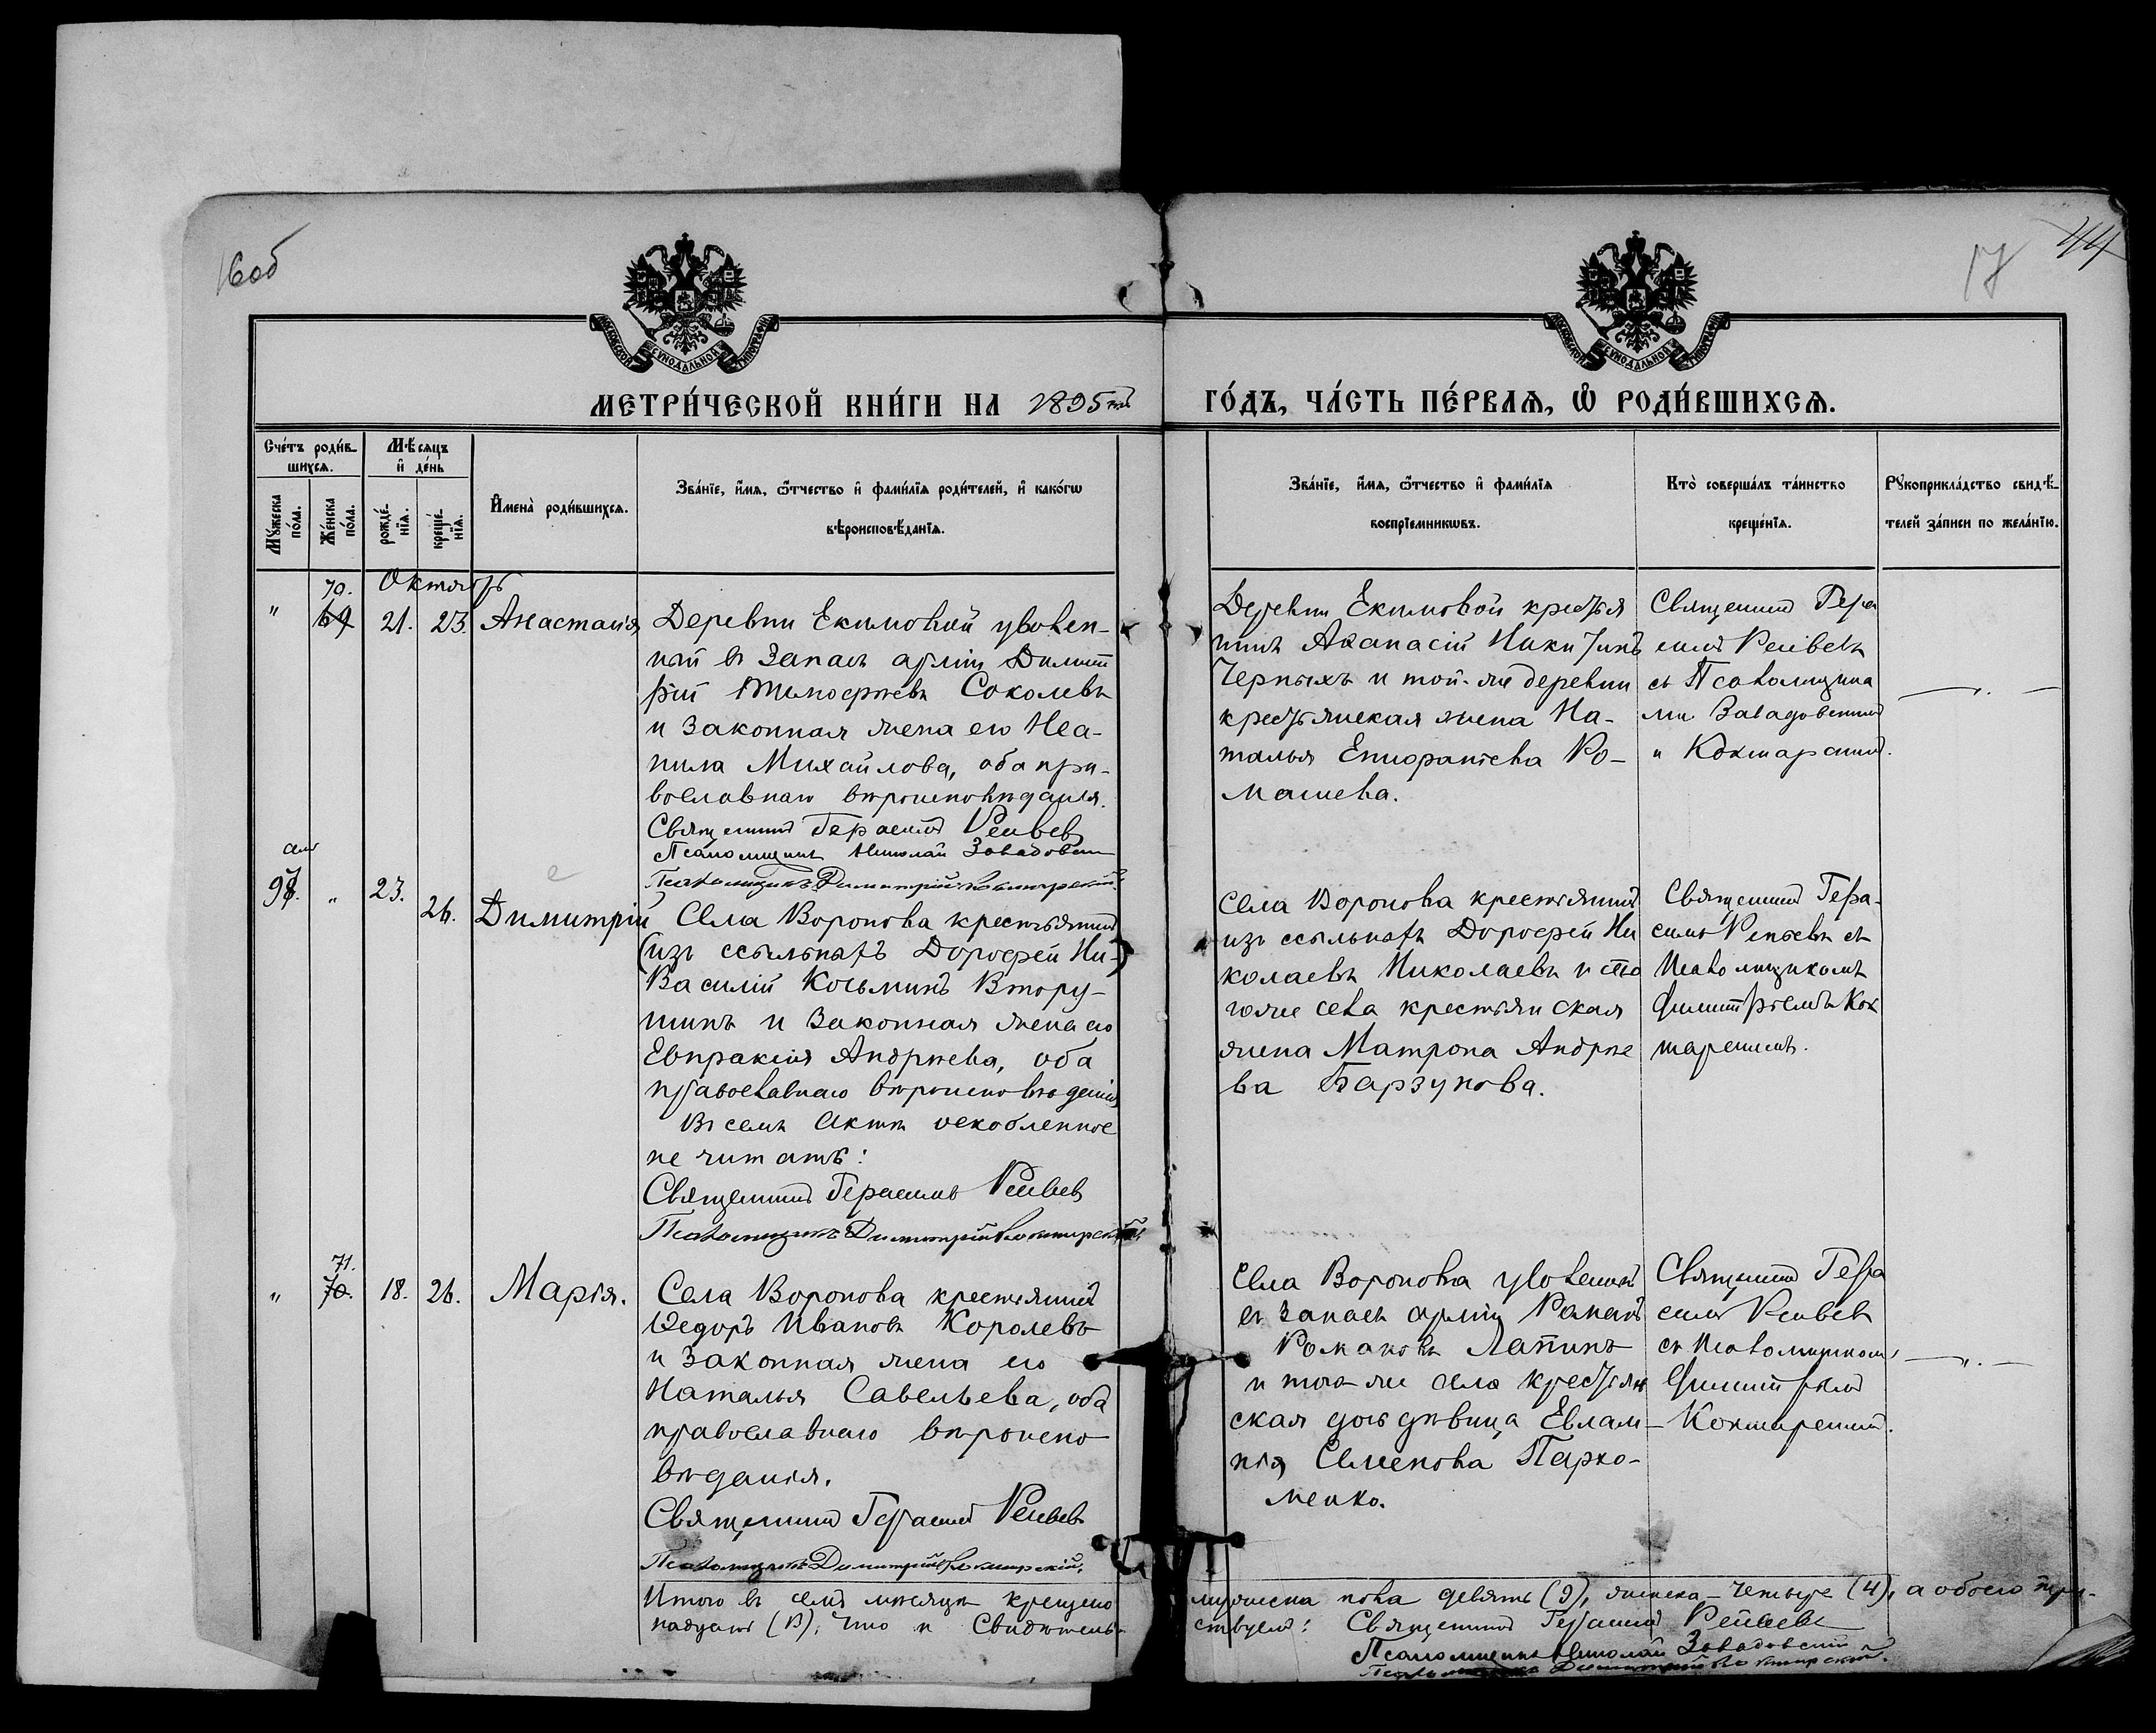 16об
17
44
МОСКОВСКОЙ СѴНОДАЛЬНОЙ ТИПОГРАФІИ
МОСКОВСКОЙ СѴНОДАЛЬНОЙ ТИПОГРАФІИ
МЕТРИ́ЧЕСКОЙ КНИ́ГИ НА 1895 год
ГО́ДЪ, ЧА́СТЬ ПЕ́РВАЯ, Ѡ҆ РОДИ́ВШИХСЯ.
Сче́тъ роди́в-
шихся.
Мꙋ́жеска
по́ла.
Же́нска
по́ла.
Мѣ́сяцъ
и҆ де́нь
рожде́-
нїя.
креще́-
нїя.
И҆мена̀ роди́вшихся.
Зва́нїе, и҆́мя, ѻ҆́тчество и҆ фами́лїя роди́телей, и҆ како́гѡ
вѣроисповѣ́данїя.
Зва́нїе, и҆́мя, ѻ҆́тчество и҆ фами́лїя
воспрїе́мникѡвъ.
Кто̀ соверша́лъ та́инство
креще́нїя.
Рꙋкоприкла́дство свидѣ́-
телей за́писи по жела́нїю.
Октябрь
70.
" 69 21. 23. Анастасія
Деревни Екимовой уволен-
ный въ запасъ арміи Димит
рій Тимофеевъ Соколовъ
и законная жена его Неа-
нила Михайлова, оба пра-
вославнаго вѣроисповѣданія.
Священникъ Герасимъ
Псаломщикъ Николай Завадовскій
Псаломщикъ Димитрій Кокшарскій
Деревни Екимовой крестья
нинъ Аѳанасій Никитинъ
Черныхъ и той-же деревни
крестьянская жена На-
талья Епифанова Ро-
машева.
Священникъ Гера
симъ
съ Псаломщика
ми Завадовскимъ
и Кокшарскимъ.
97. " 23. 26. Димитрій
Села Воронова крестьянинъ
(изъ ссыльныхъ Дорофей Ни-)
Василій Косьминъ Втору-
шинъ и законная жена его
Евпраксія Андреева, оба
православнаго вѣроисповѣданія
Въ семъ актѣ оскобленное
не читать:
Священникъ Герасимъ
Псаломщикъ Димитрій Кокшарскій
Села Воронова крестьянинъ
изъ ссыльныхъ Дорофей Ни
колаевъ Николаевъ и то
гоже села крестьянская
жена Матрона Андрее
ва Барзунова.
Священникъ Гера-
симъ съ
Псаломщикомъ
Димитріемъ Кок
шарскимъ.
71.
" 70. 18. 26. Марія.
Села Воронова крестьянинъ
Ѳедоръ Ивановъ Королевъ
и законная жена его
Наталья Савельева, оба
православнаго вѣроиспо-
вѣданія.
Священникъ Герасимъ
Псаломщикъ Димитрій Кокшарскій.
Села Воронова уволенный
въ запасъ арміи Романъ
Романовъ Лапинъ
и того-же села крестьян
ская дочь дѣвица Евлам-
пія Семенова Пархо-
менко.
Священникъ Гера
симъ
съ Псаломщикомъ
Димитріемъ
Кокшарскимъ.
Итого въ семъ мѣсяцѣ крещено мужеска пола девять (9), женска - четыре (4), а обоего три-
надцать (13), что и свидѣтельствуемъ: Священникъ Герасимъ
Псаломщикъ Николай Завадовскій
Псаломщикъ Димитрій Кокшарскій.